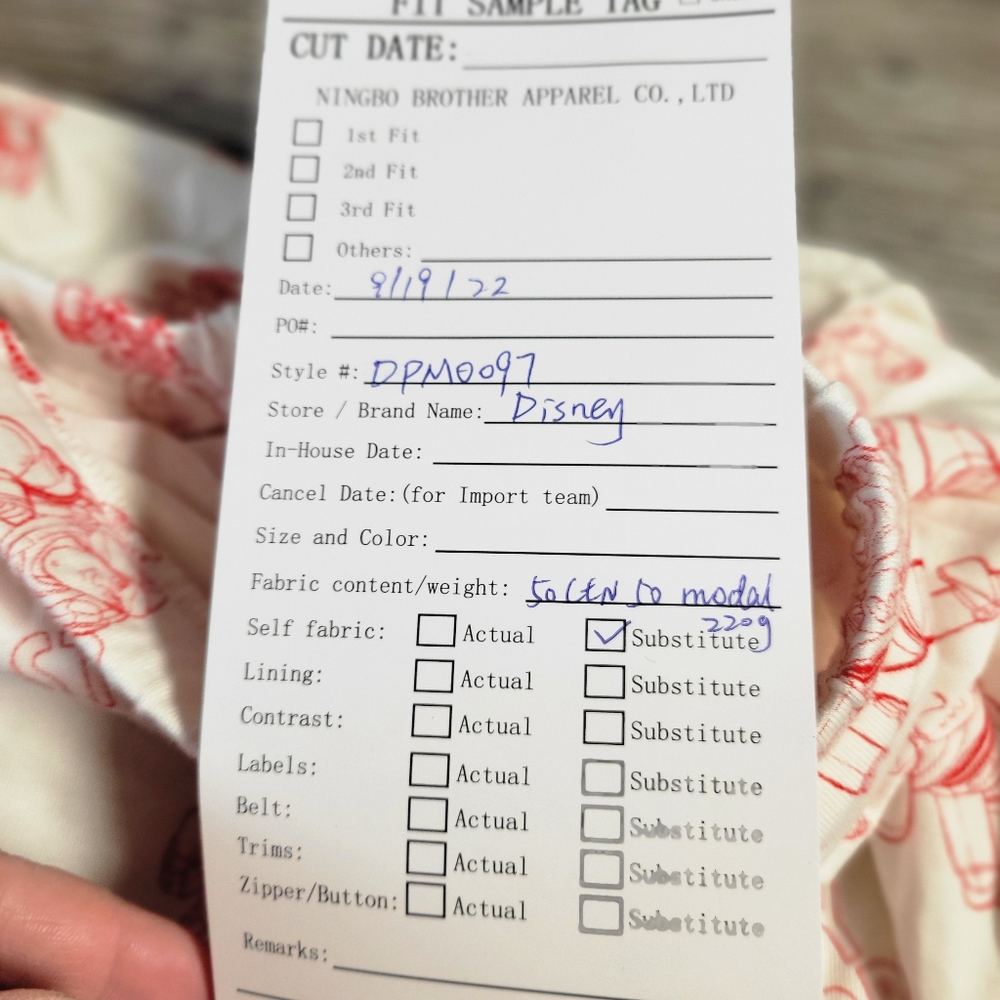 FIT SAMPLE TAG
CUT DATE:
NINGBO BROTHER APPAREL CO.,LTD
1st Fit
2nd Fit
3rd Fit
Others:
Date: 9/19/22
PO#:
Style #: DPM0097
Store / Brand Name: Disney
In-House Date:
Cancel Date:(for Import team)
Size and Color:
Fabric content/weight: 50 CTN 50 modal
220g
Self fabric: Actual Substitute
Lining: Actual Substitute
Contrast: Actual Substitute
Labels: Actual Substitute
Belt: Actual Substitute
Trims: Actual Substitute
Zipper/Button: Actual Substitute
Remarks: